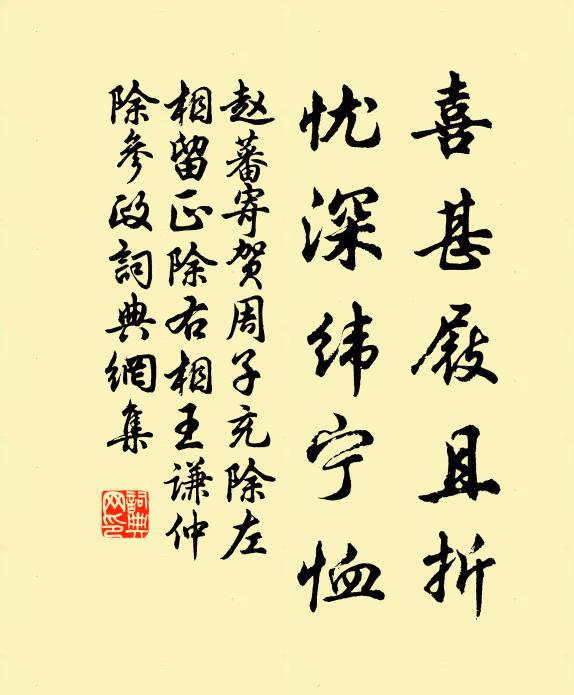 喜甚屐且折
忧深纬宁恤
赵蕃寄贺周子充除左
相留正除右相王谦仲
除参政词典网集
词典网印